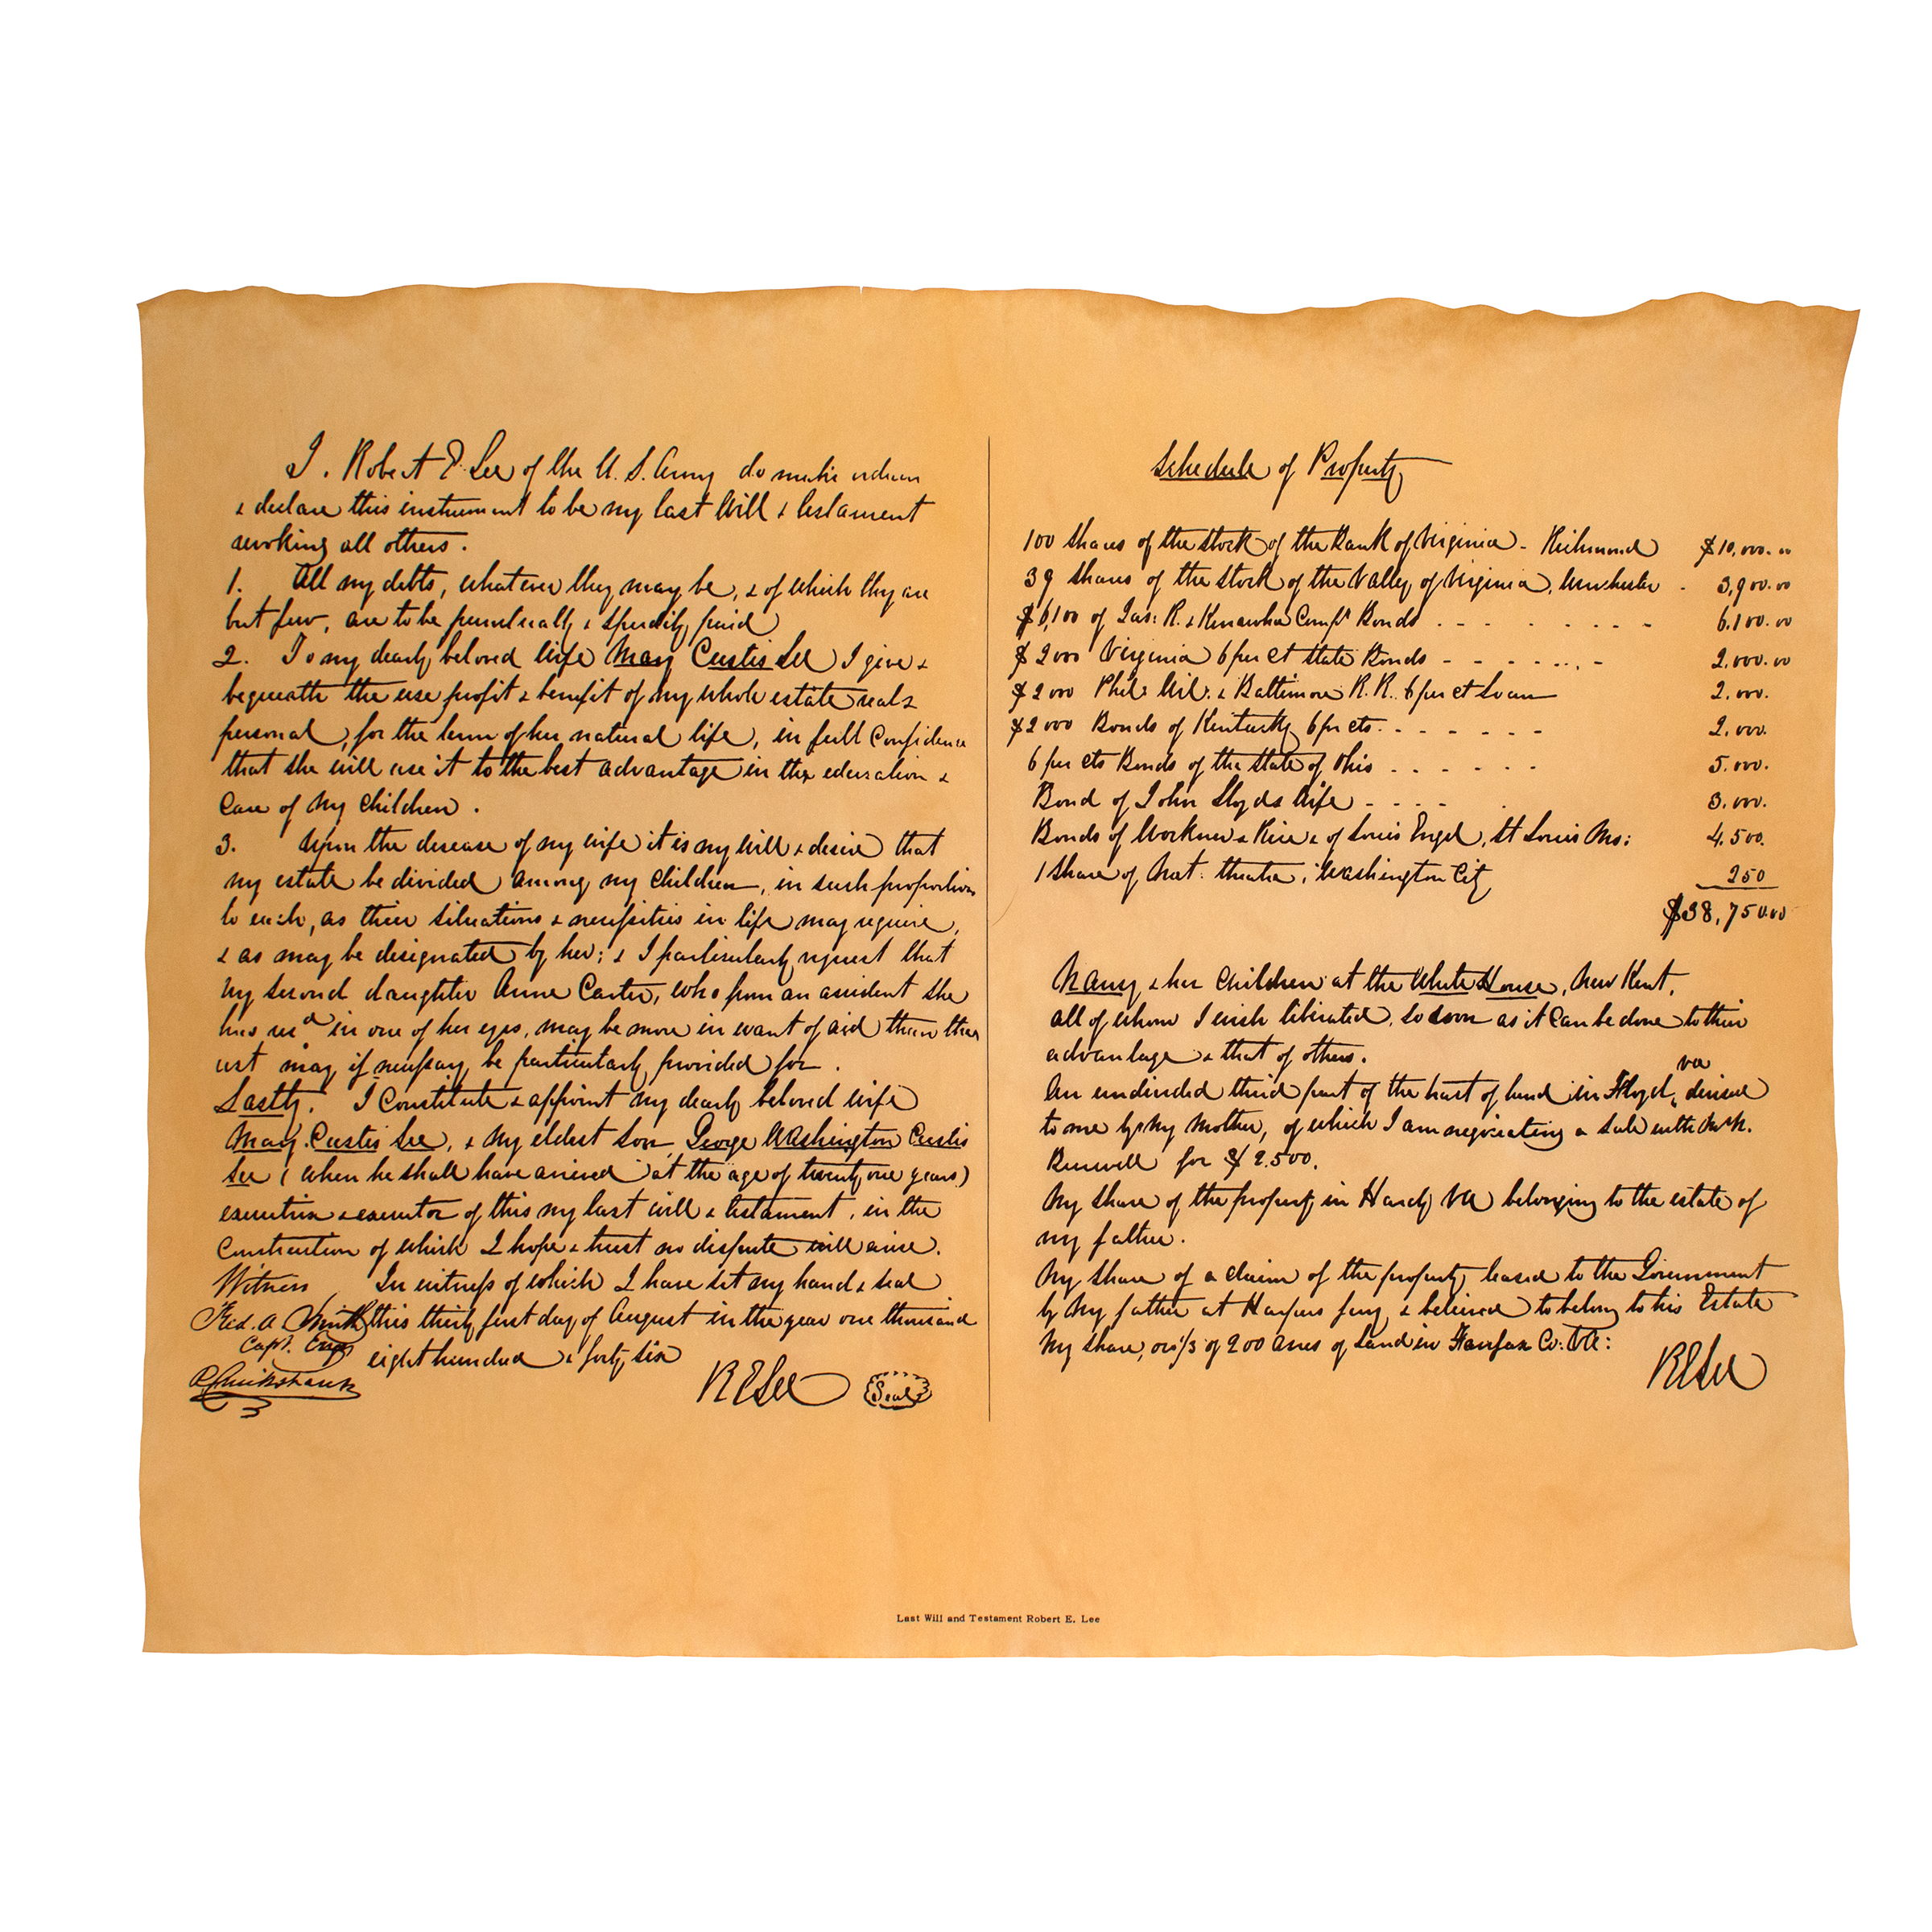 I. Robert E Lee of the U. S. Army do make ordain
& declare this instrument to be my last Will & testament
revoking all others.
1. All my debts, whatever they may be, & of which they are
but few, are to be punctually & speedily paid
2. To my dearly beloved wife Mary Custis Lee I give &
bequeath the use profit & benefit of my whole estate real &
personal, for the term of her natural life, in full Confidence
that she will use it to the best advantage in the education &
Care of my Children.
3. Upon the decease of my wife it is my will & desire that
my estate be divided among my Children, in such proportions
to each, as their situations & necessities in life may require,
& as may be designated by her; & I particularly request that
my second daughter Anne Carter, who from an accident she
has recd in one of her eyes, may be more in want of aid than the
rest may, if necessary, be particularly provided for.
Lastly. I Constitute & appoint my dearly beloved wife
Mary Custis Lee, & my eldest son George Washington Custis
Lee (when he shall have arrived at the age of twenty one years)
executrix & executor of this my last will & testament, in the
Construction of which I hope & trust no dispute will arise.
Witness In witness of which I have set my hand & seal
Fred. A. Smith this thirty first day of August in the year one thousand
Capt. Engs eight hundred & forty six
R Cruikshank
RELee Seal
Schedule of Property
100 Shares of the stock of the Bank of Virginia - Richmond $10,000.00
39 Shares of the stock of the Valley of Virginia, Winchester - 3,900.00
$6,100 of Jas: R. & Kenawha Compy Bonds - - - - - - - - 6.100.00
$2000 Virginia 6 per ct State Bonds - - - - - - - 2.000.00
$2000 Phil: Wil: & Baltimore R.R. 6 per ct Loan 2.000.
$2000 Bonds of Kentucky 6 pr cts. - - - - - - 2.000.
6 per cts Bonds of the state of Ohio - - - - - - 5.000.
Bond of John Lloyds Wife - - - - 3.000.
Bonds of Workner & Rice & of Louis Engel, St Louis Mo: 4.500.
1 Share of Nat: theatre, Washington City 250
$38,750.00
Nancy & her Children at the White House, New Kent,
all of whom I wish liberated, so soon as it Can be done to their
advantage & that of others.
va
An undivided third part of the tract of land in Floyd, devised
to me by my Mother, of which I am negociating a sale with
for $2.500.
My Share of the property in Hardy Va belonging to the estate of
my father.
My Share of a claim of the property leased to the Government
by my father at Harpers ferry & believed to belong to his Estate
My share, or 1/3 of 200 acres of Land in Fairfax Co: Va:
RELee
Last Will and Testament Robert E. Lee